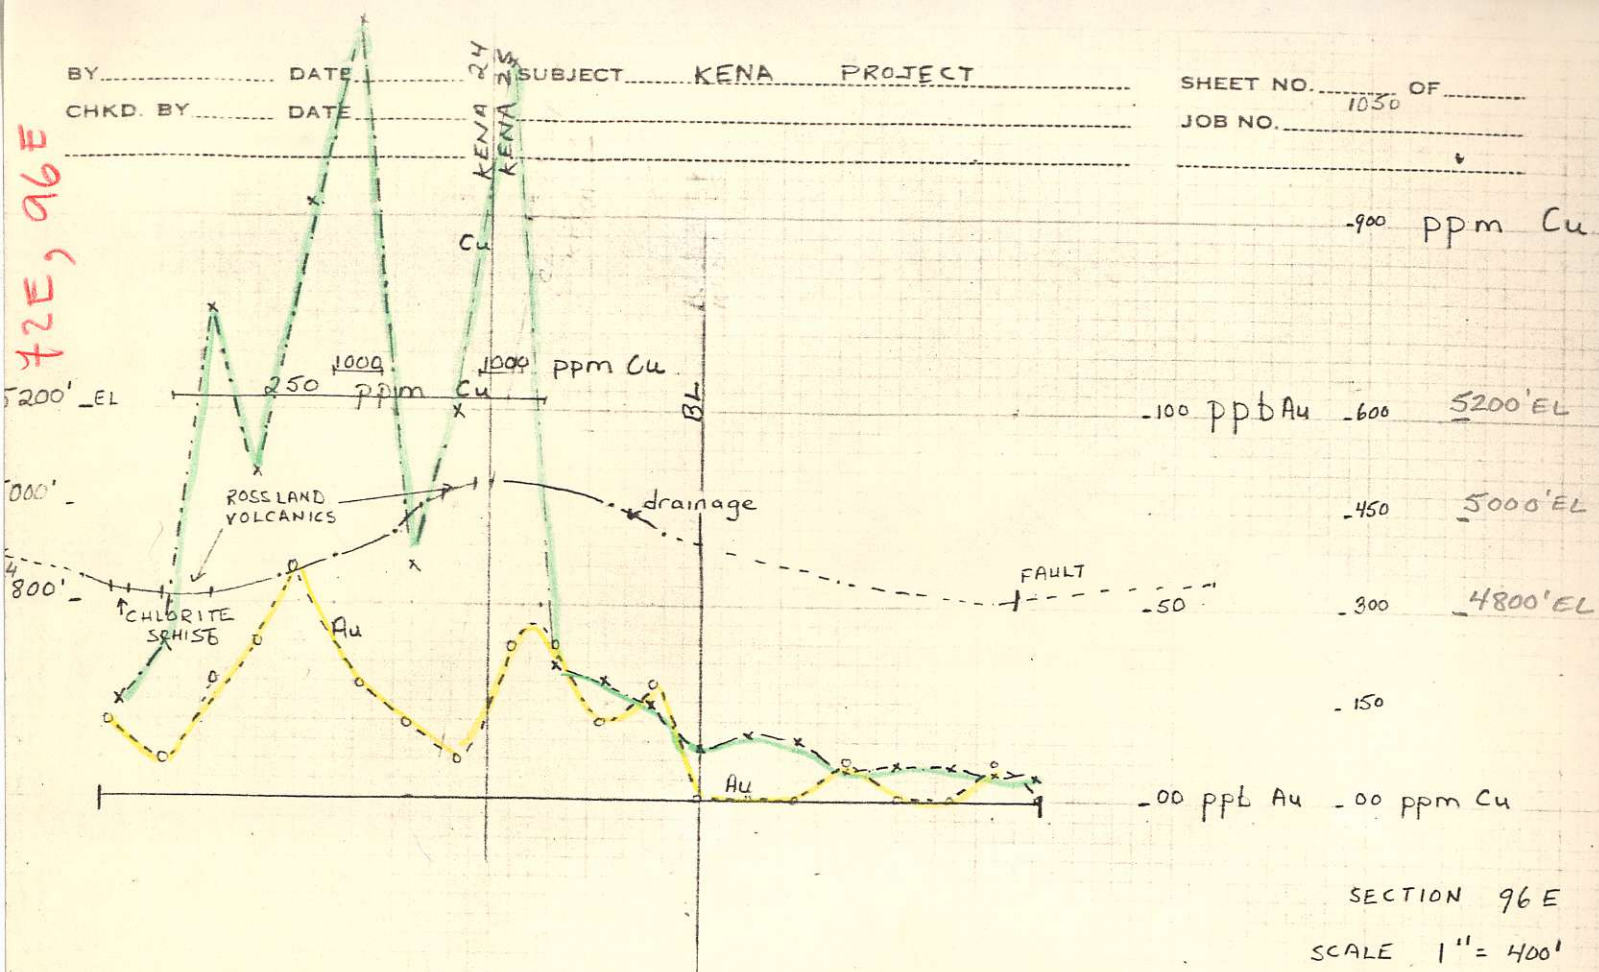 BY DATE SUBJECT KENA PROJECT SHEET NO. OF
CHKD. BY DATE JOB NO. 1050
KENA 24
KENA 25
72E, 96E
-900 ppm Cu
Cu
1000 1000 ppm Cu
250 ppm Cu
5200' -EL
BL
-100 ppb Au -600 5200'EL
000' -
ROSSLAND
VOLCANICS
drainage
-450 5000'EL
4800' -
FAULT
-50 -300 -4800'EL
CHLORITE
SCHIST
Au
-150
Au
-00 ppb Au -00 ppm Cu
SECTION 96E
SCALE 1"= 400'